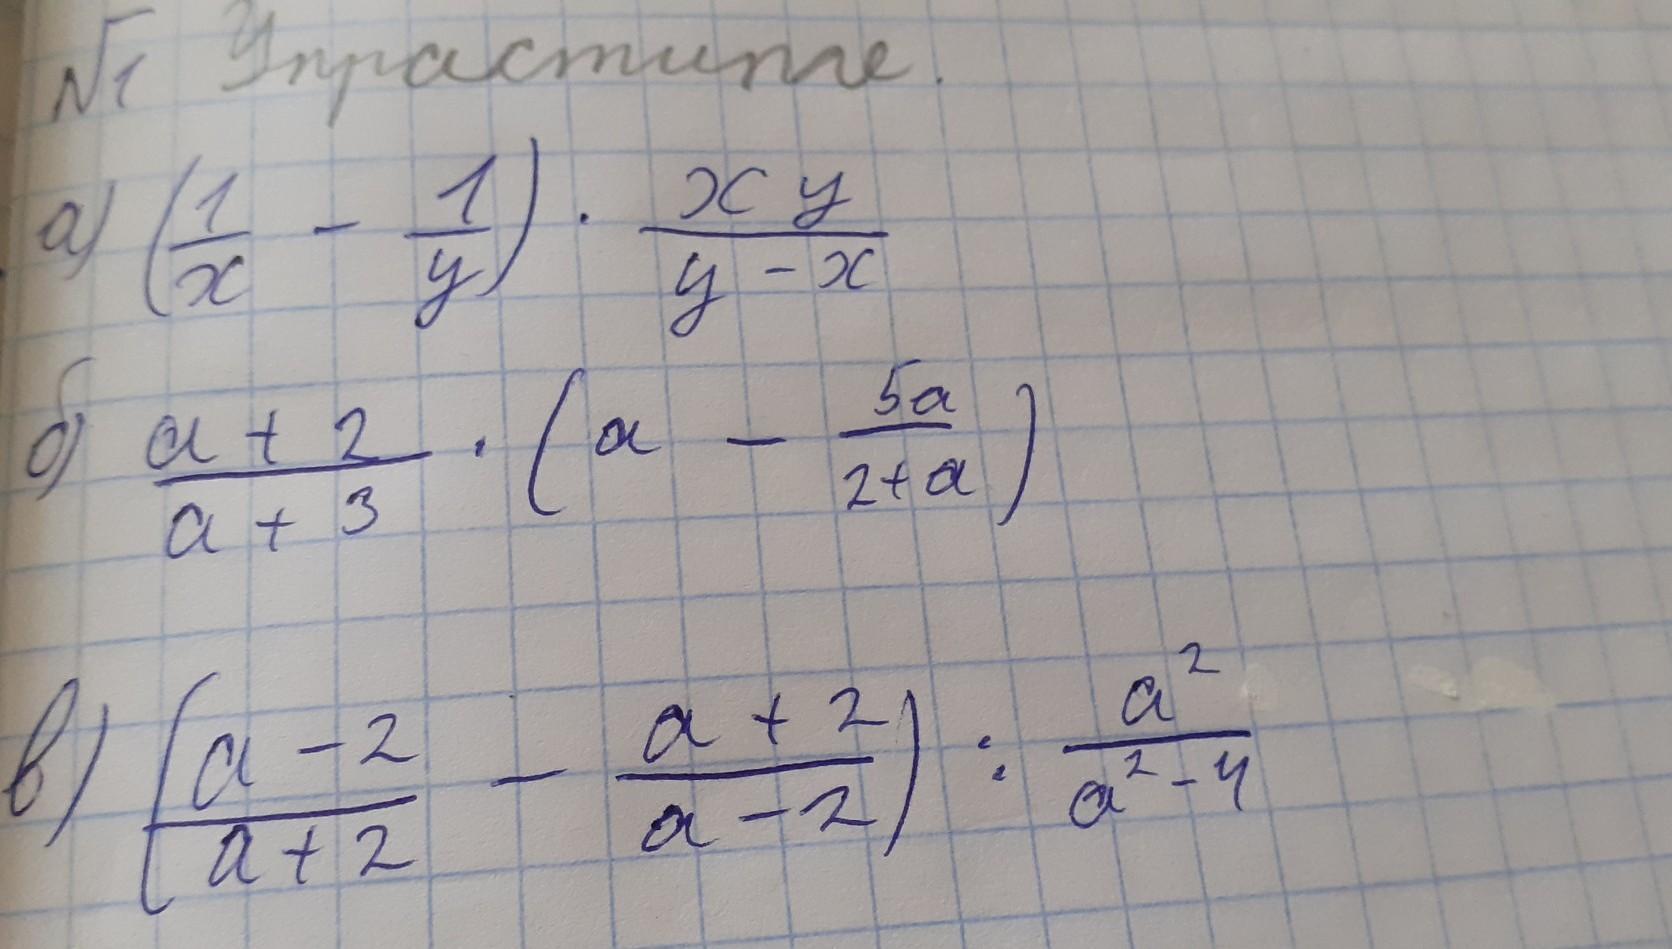 №1 Упрастите.
а) (1/x - 1/y) · xy/(y - x)
б) (a + 2)/(a + 3) · (a - 5a/(2+a))
в) ((a - 2)/(a + 2) - (a + 2)/(a - 2)) : a²/(a² - 4)